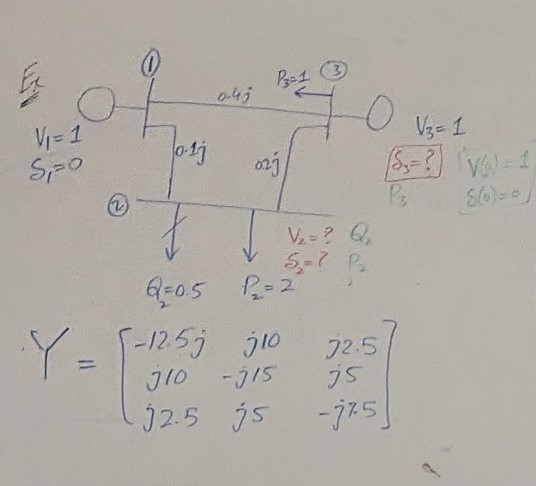 Ex
①
③
P₃=1
0.4j
V₁=1
δ₁=0
0.1j
0.2j
V₃=1
δ₃=?
P₃
V(0)=1
δ(0)=0
②
V₂=? Q₂
δ₂=? P₂
Q₂=0.5 P₂=2
Y = [-12.5j j10 j2.5
j10 -j15 j5
j2.5 j5 -j7.5]